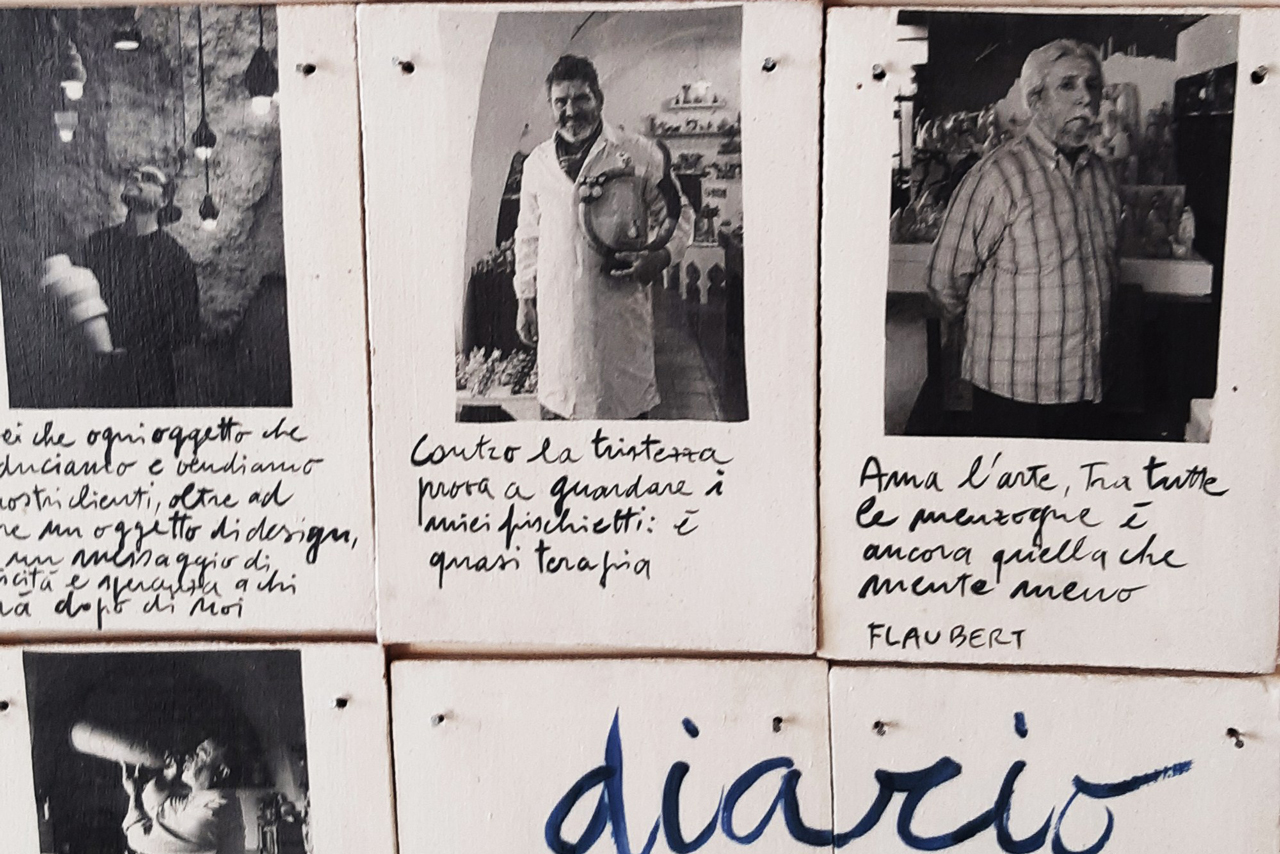 ei che ogni oggetto che
duciamo e vendiamo
nostri clienti, oltre ad
re un oggetto di design,
un messaggio di
icità e speranza a chi
rà dopo di noi
Contro la tristezza
prova a guardare i
miei fischietti: è
quasi terapia
Ama l'arte, Tra tutte
le menzogne è
ancora quella che
mente meno
FLAUBERT
diario